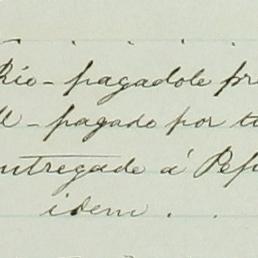 Rio - pagadole
- pagado por
entregade á
idem . .